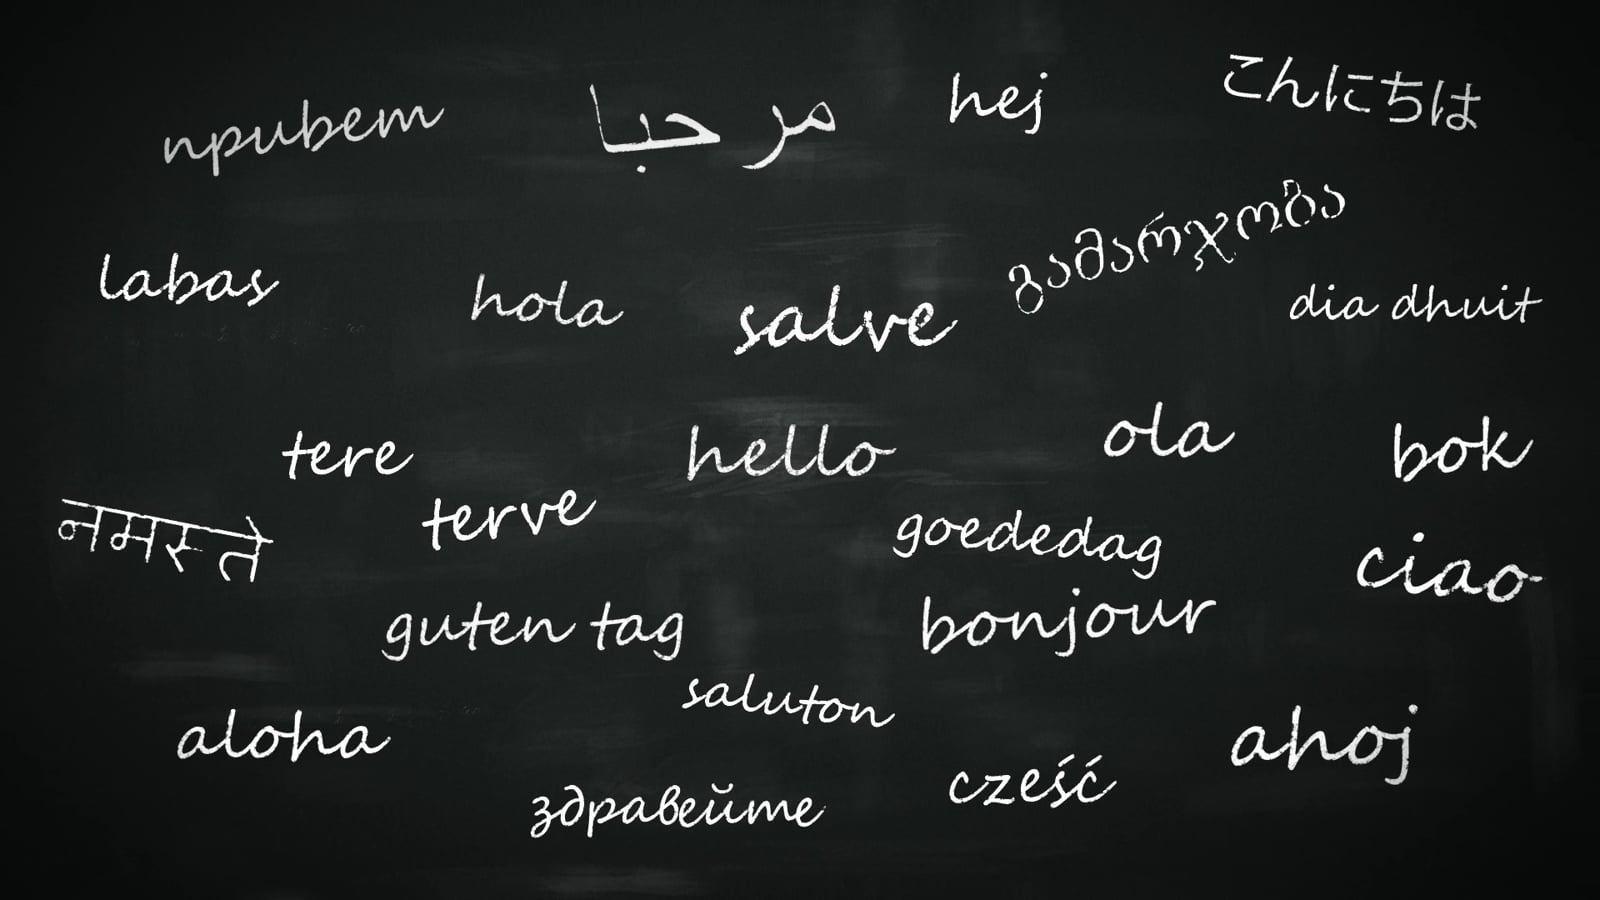 привет
مرحبا
hej
こんにちは
გამარჯობა
labas
hola
salve
dia dhuit
tere
hello
ola
bok
नमस्ते
terve
goededag
ciao
guten tag
bonjour
saluton
aloha
ahoj
здравейте
cześć